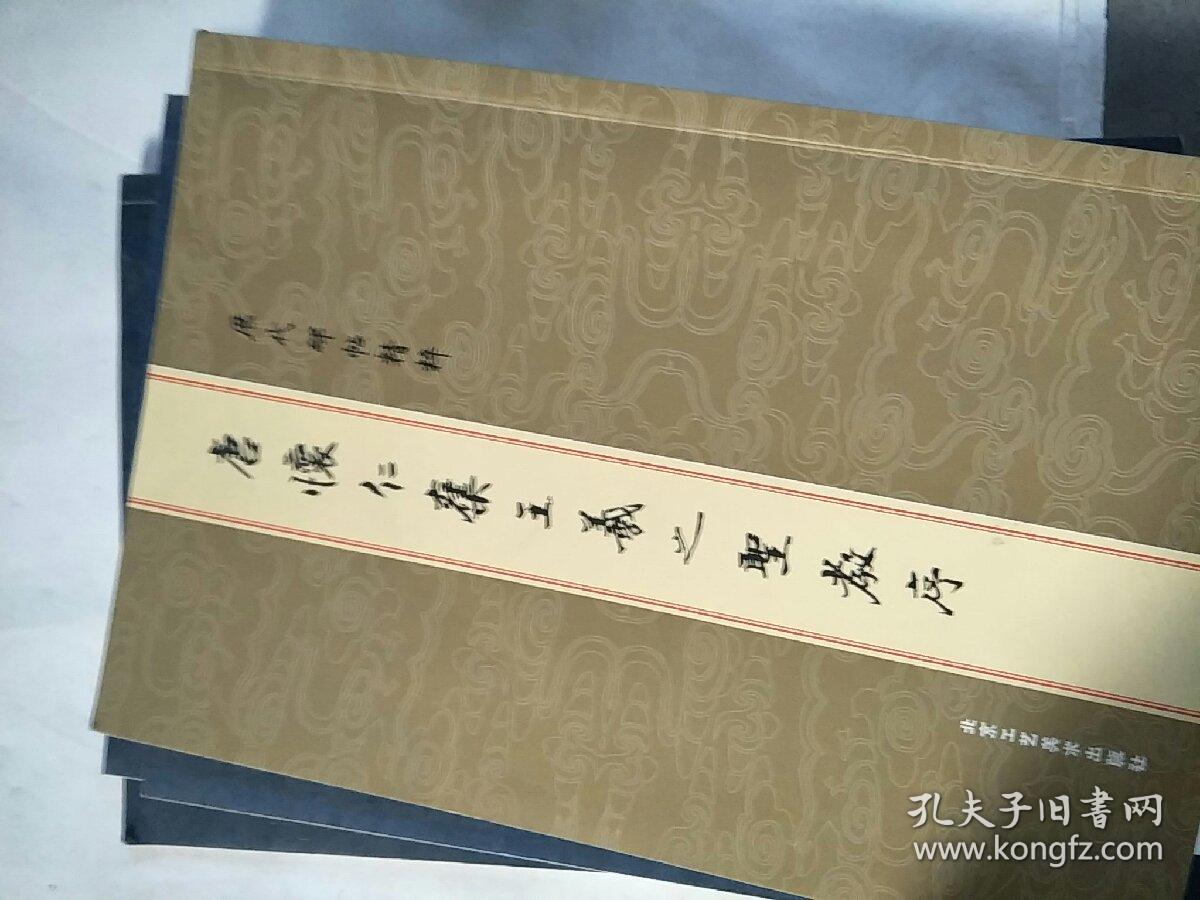 歷代碑帖精粹
唐懷仁集王羲之聖教序
北京工艺美术出版社
孔夫子旧書网
www.kongfz.com